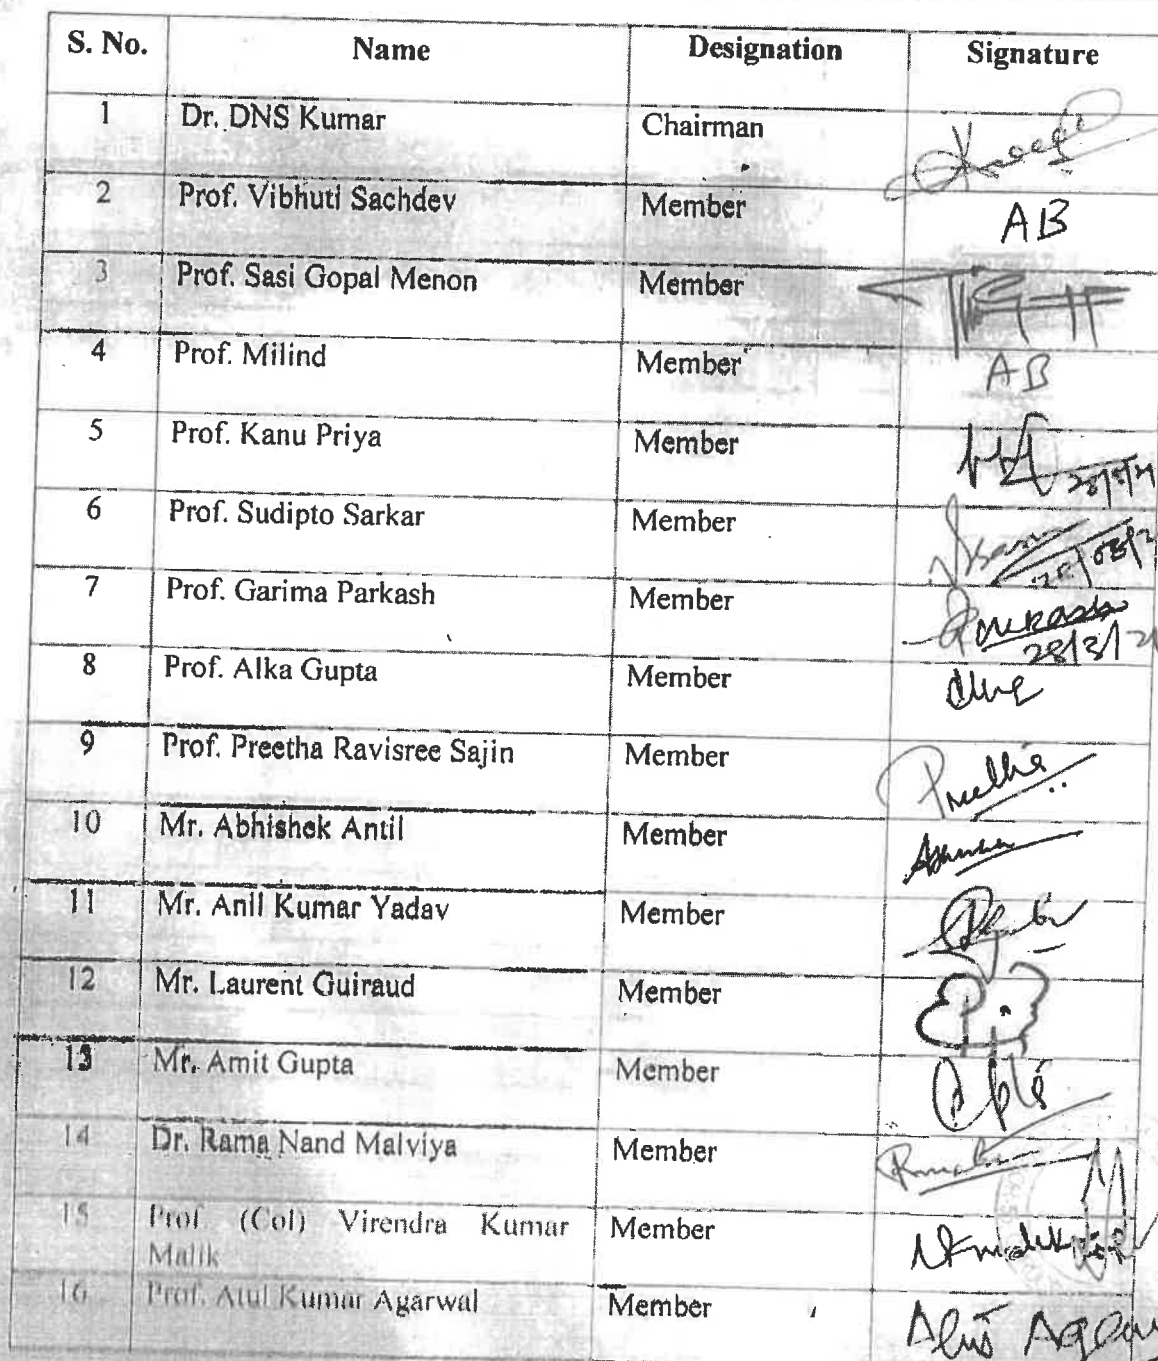 S. No. Name Designation Signature
1 Dr. DNS Kumar Chairman
2 Prof. Vibhuti Sachdev Member AB
3 Prof. Sasi Gopal Menon Member
4 Prof. Milind Member AB
5 Prof. Kanu Priya Member
6 Prof. Sudipto Sarkar Member
7 Prof. Garima Parkash Member
28/3/21
8 Prof. Alka Gupta Member
9 Prof. Preetha Ravisree Sajin Member Preetha
10 Mr. Abhishek Antil Member
11 Mr. Anil Kumar Yadav Member
12 Mr. Laurent Guiraud Member
13 Mr. Amit Gupta Member
14 Dr. Rama Nand Malviya Member
15 Prof (Col) Virendra Kumar Member
Malik
16 Prof. Atul Kumar Agarwal Member